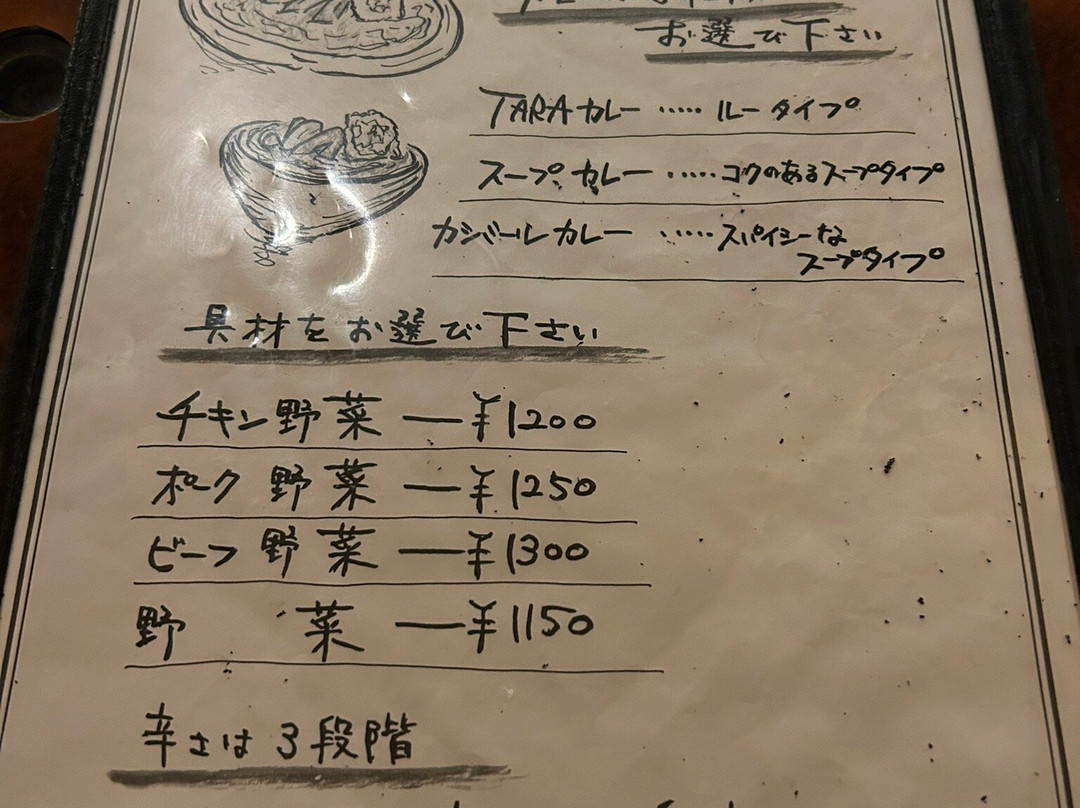 お選び下さい
TARAカレー ‥‥‥ ルータイプ
スープカレー ‥‥‥ コクのあるスープタイプ
カシミールカレー ‥‥‥ スパイシーな
スープタイプ
具材をお選び下さい
チキン野菜 ― ¥1200
ポーク野菜 ― ¥1250
ビーフ野菜 ― ¥1300
野菜 ― ¥1150
辛さは3段階